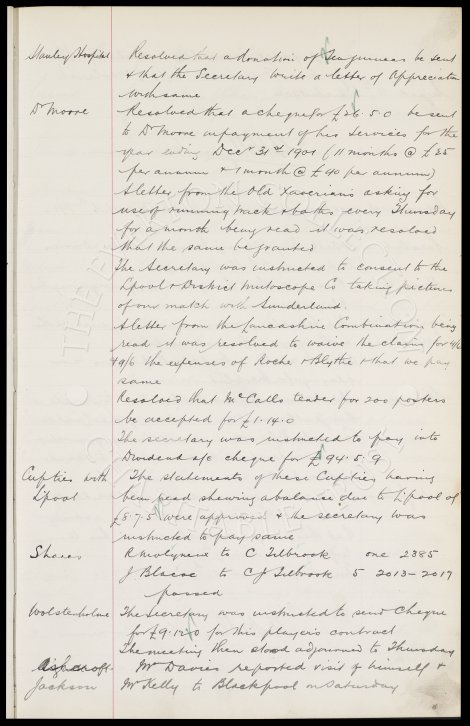 Stanley Hospital Resolved that a donation of Ten guineas be sent
& that the Secretary write a letter of Appreciation
with same
Dr Moore Resolved that a cheque for £26.5.0 be sent
to Dr Moore in payment of his Services for the
year ending Decr 31st 1901 (11 months @ £25
per annum & 1 month @ £40 per annum)
A letter from the Old Xaverians asking for
use of running track & baths every Thursday
for a month being read it was resolved
that the same be granted
The Secretary was instructed to consent to the
Lpool & District Mutoscope Co taking pictures
of our match with Sunderland.
A letter from the Lancashire Combination being
read it was resolved to waive the claim for
9/6 the expenses of Roche & Blythe & that we pay
same
Resolved that McCalls tender for 200 posters
be accepted for £1.14.0
The secretary was instructed to pay into
Dividend a/c cheque for £94.5.9
Cup ties with Lpool The statements of these Cup ties having
been read shewing a balance due to Lpool of
£5.7.5 were approved & the secretary was
instructed to pay same
Shares R Molyneux to C Tilbrook one 2385
J Blscoe to C J Tilbrook 5 2013-2017
passed
Wolstenholme The Secretary was instructed to send Cheque
for £9.12.0 for this players contract
The meeting then stood adjourned to Thursday
Ashcroft Mr Davies reported visit of himself &
Jackson Mr Kelly to Blackpool on Saturday